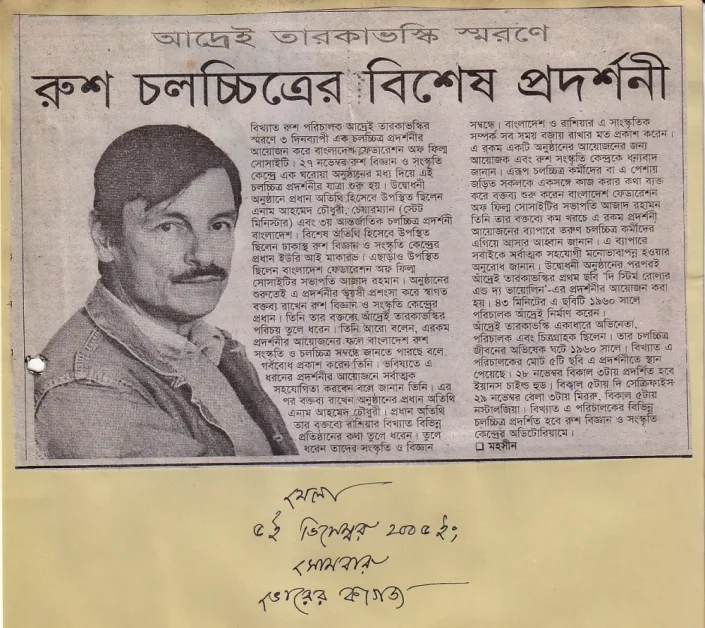 আদ্রেই তারকাভস্কি স্মরণে
রুশ চলচ্চিত্রের বিশেষ প্রদর্শনী
বিখ্যাত রুশ পরিচালক আন্দ্রেই তারকাভস্কির
স্মরণে ৩ দিনব্যাপী এক চলচ্চিত্র প্রদর্শনীর
আয়োজন করে বাংলাদেশ ফেডারেশন অফ ফিল্ম
সোসাইটি। ২৭ নভেম্বর রুশ বিজ্ঞান ও সংস্কৃতি
কেন্দ্রে এক ঘরোয়া অনুষ্ঠানের মধ্য দিয়ে এই
চলচ্চিত্র প্রদর্শনীর যাত্রা শুরু হয়। উদ্বোধনী
অনুষ্ঠানে প্রধান অতিথি হিসেবে উপস্থিত ছিলেন
এনাম আহমেদ চৌধুরী, চেয়ারম্যান (স্টেট
মিনিস্টার) এবং ৩য় আন্তর্জাতিক চলচ্চিত্র প্রদর্শনী
বাংলাদেশ। বিশেষ অতিথি হিসেবে উপস্থিত
ছিলেন ঢাকাস্থ রুশ বিজ্ঞান ও সংস্কৃতি কেন্দ্রের
প্রধান ইউরি আই মাকারভ। এছাড়াও উপস্থিত
ছিলেন বাংলাদেশ ফেডারেশন অফ ফিল্ম
সোসাইটির সভাপতি আজাদ রহমান। অনুষ্ঠানের
শুরুতেই এ প্রদর্শনীর ভূয়সী প্রশংসা করে স্বাগত
বক্তব্য রাখেন রুশ বিজ্ঞান ও সংস্কৃতি কেন্দ্রের
প্রধান। তিনি তার বক্তব্যে আঁদ্রেই তারকাভস্কির
পরিচয় তুলে ধরেন। তিনি আরো বলেন, এরকম
প্রদর্শনীর আয়োজনের ফলে বাংলাদেশ রুশ
সংস্কৃতি ও চলচ্চিত্র সম্বন্ধে জানতে পারছে বলে
গর্ববোধ প্রকাশ করেন তিনি। ভবিষ্যতে এ
ধরনের প্রদর্শনীর আয়োজনে সর্বাত্মক
সহযোগিতা করবেন বলে জানান তিনি। এর
পর বক্তব্য রাখেন অনুষ্ঠানের প্রধান অতিথি
এনাম আহমেদ চৌধুরী। প্রধান অতিথি
তার বক্তব্যে রাশিয়ার বিখ্যাত বিভিন্ন
প্রতিষ্ঠানের কথা তুলে ধরেন। তুলে
ধরেন তাদের সংস্কৃতি ও বিজ্ঞান
সম্বন্ধে। বাংলাদেশ ও রাশিয়ার এ সাংস্কৃতিক
সম্পর্ক সব সময় বজায় রাখার মত প্রকাশ করেন।
এ রকম একটি অনুষ্ঠানের আয়োজনের জন্য
আয়োজক এবং রুশ সংস্কৃতি কেন্দ্রকে ধন্যবাদ
জানান। এরূপ চলচ্চিত্র কর্মীদের বা এ পেশায়
জড়িত সকলকে একসঙ্গে কাজ করার কথা ব্যক্ত
করে বক্তব্য শুরু করেন বাংলাদেশ ফেডারেশন
অফ ফিল্ম সোসাইটির সভাপতি আজাদ রহমান
তিনি তার বক্তব্যে কম খরচে এ রকম প্রদর্শনী
আয়োজনের ব্যাপারে তরুণ চলচ্চিত্র কর্মীদের
এগিয়ে আসার আহবান জানান। এ ব্যাপারে
সবাইকে সর্বাত্মক সহযোগী মনোভাবাপন্ন হওয়ার
অনুরোধ জানান। উদ্বোধনী অনুষ্ঠানের পরপরই
আঁদ্রেই তারকাভস্কির প্রথম ছবি 'দি স্টিম রোলার
এন্ড দ্য ভায়োলিন'-এর প্রদর্শনীর আয়োজন করা
হয়। ৪৩ মিনিটের এ ছবিটি ১৯৬০ সালে
পরিচালক আঁদ্রেই নির্মাণ করেন।
আঁদ্রেই তারকাভস্কি একাধারে অভিনেতা,
পরিচালক এবং চিত্রগ্রাহক ছিলেন। তার চলচ্চিত্র
জীবনের অভিষেক ঘটে ১৯৬০ সালে। বিখ্যাত এ
পরিচালকের মোট ৫টি ছবি এ প্রদর্শনীতে স্থান
পেয়েছে। ২৮ নভেম্বর বিকাল ৩টায় প্রদর্শিত হবে
ইয়ানস চাইল্ড হুড। বিকাল ৫টায় দি সেক্রিফাইস
২৯ নভেম্বর বেলা ৩টায় মিররু, বিকাল ৫টায়
নস্টালজিয়া। বিখ্যাত এ পরিচালকের বিভিন্ন
চলচ্চিত্র প্রদর্শিত হবে রুশ বিজ্ঞান ও সংস্কৃতি
কেন্দ্রের অডিটোরিয়ামে।
মহসীন
মেলা
৫ই ডিসেম্বর ২০০৫ ইং;
সোমবার
ভোরের কাগজ